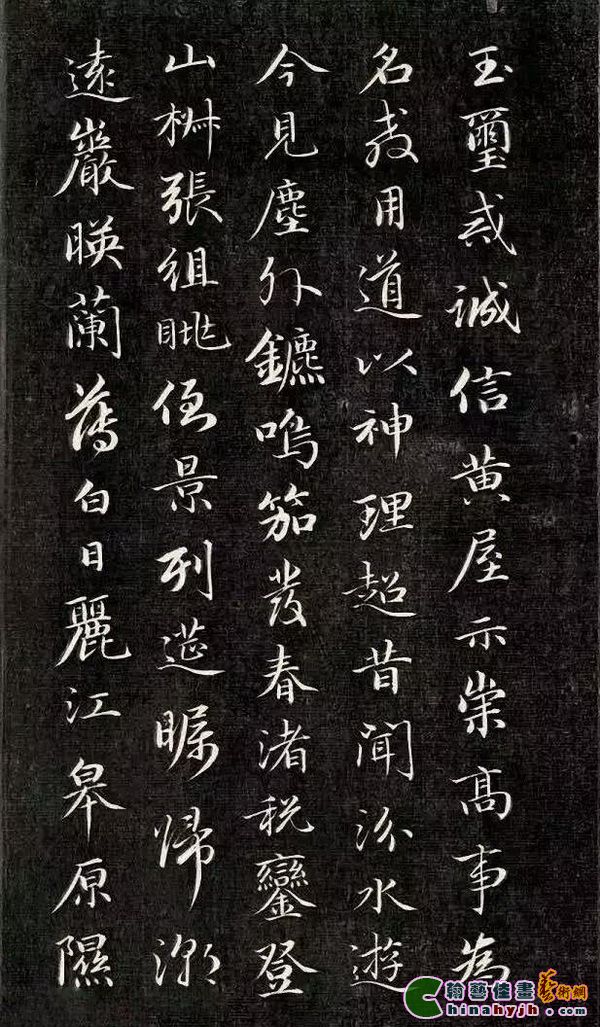 玉璽戒誠信黄屋示崇高事為
名教用道以神理超昔聞汾水遊
今見塵外鑣鳴笳發春渚税鑾登
山椒張組眺倒景列筵矚歸潮
遠巖暎蘭薄白日麗江皋原隰
翰藝佳畫藝術網
Chinahyjh.com